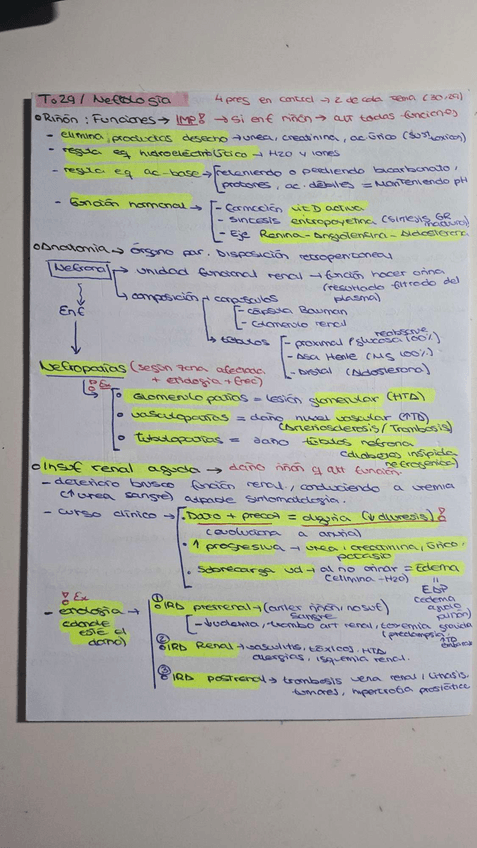 T.29 / Nefrología 4 preg en control → 2 de cada tema (30, 29)
Riñón: Funciones → IMP! → si enf riñón → alt todas funciones
- elimina productos desecho → urea, creatinina, ac. úrico (sust tóxicas)
- regula eq hidroelectrolítico → H2O y iones
- regula eq ac-base → reteniendo o perdiendo bicarbonato,
protones, ac. débiles = manteniendo pH
- Función hormonal → - Formación vit D activa
- síntesis eritropoyetina (síntesis GR
- Eje Renina - Angiotensina - Aldosterona
Anatomía → órgano par. Disposición retroperitoneal
Nefrona → unidad funcional renal → función hacer orina
(resultado filtrado del
plasma)
composición → corpúsculos
- cápsula Bowman
- Glomérulo renal
Enf
túbulos - proximal (reabsorbe glucosa 100%)
- Asa Henle
- Distal (Aldosterona)
Nefropatías (según zona afectada
+ etiología + frec)
Ex
Glomerulopatías = lesión glomerular (HTA)
vasculopatías = daño nivel vascular
(Arteriosclerosis / Trombosis)
Tubulopatías = daño túbulos nefrona
(diabetes insípida
nefrogénica)
Insuf renal aguda → daño riñón y alt función
- deterioro brusco función renal, conduciendo a uremia
(↑ urea sangre) aparece sintomatología.
- curso clínico → Dato + precoz = oliguria (↓ diuresis)!
(evoluciona a anuria)
↑ progresiva → urea, creatinina, úrico,
potasio
sobrecarga vol → al no orinar = Edema
(elimina - H2O)
EAP
(edema
agudo
pulmón)
Ex
- etiología →
(donde
esté el
daño)
① IRA prerrenal → (antes riñón, no suf
sangre
- hipovolemia, trombo art renal, toxemia gravídica
(preeclampsia)
② IRA Renal → vasculitis, tóxicos, HTA
alergias, isquemia renal.
③ IRA postrenal → trombosis vena renal, litiasis,
tumores, hipertrofia prostática